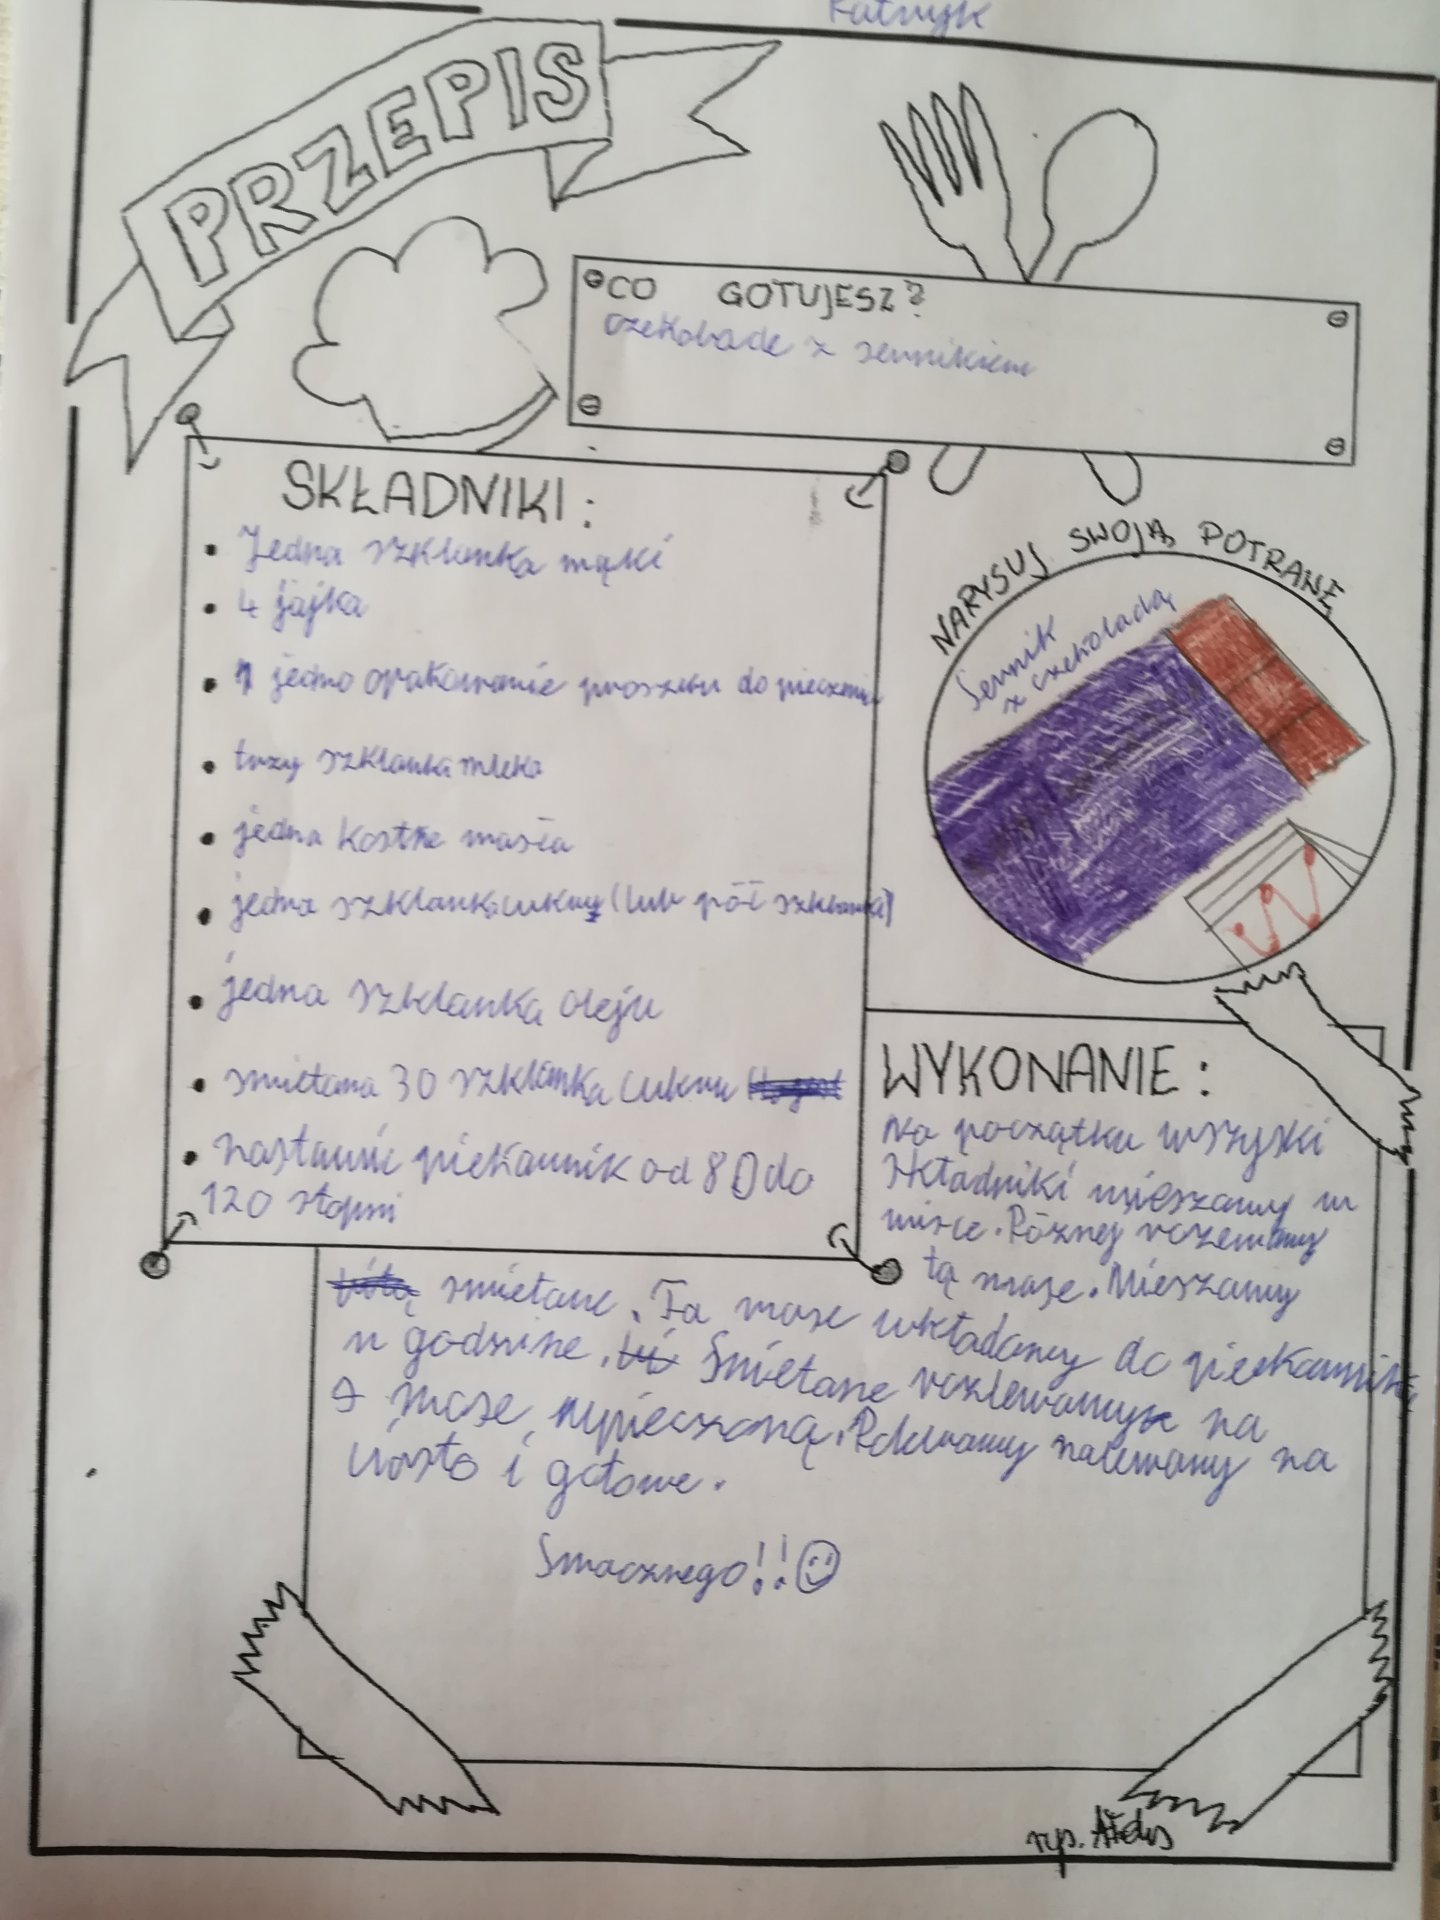 PRZEPIS
CO GOTUJESZ?
czekolade z sernikiem
SKŁADNIKI:
• Jedna szklanka mąki
• 4 jajka
• jedno opakowanie proszku do pieczenia
• trzy szklanka mleka
• jedna kostke masła
• jedna szklanka cukru (lub pół szklanka)
• jedna szklanka oleju
• smietana 30 szklanka cukru
• nastawic piekarnik od 80 do
120 stopni
NARYSUJ SWOJĄ POTRANĘ
Sernik
z czekoladą
WYKONANIE:
Na początku wszyski
składniki mieszamy w
misce. Póznej
tą mase. Mieszamy
smietane. Ta mase wkładamy do piekarnika
w godzine. Smietane na
mase wypieczoną. nalewamy na
ciasto i gotowe.
Smacznego!!
rys.